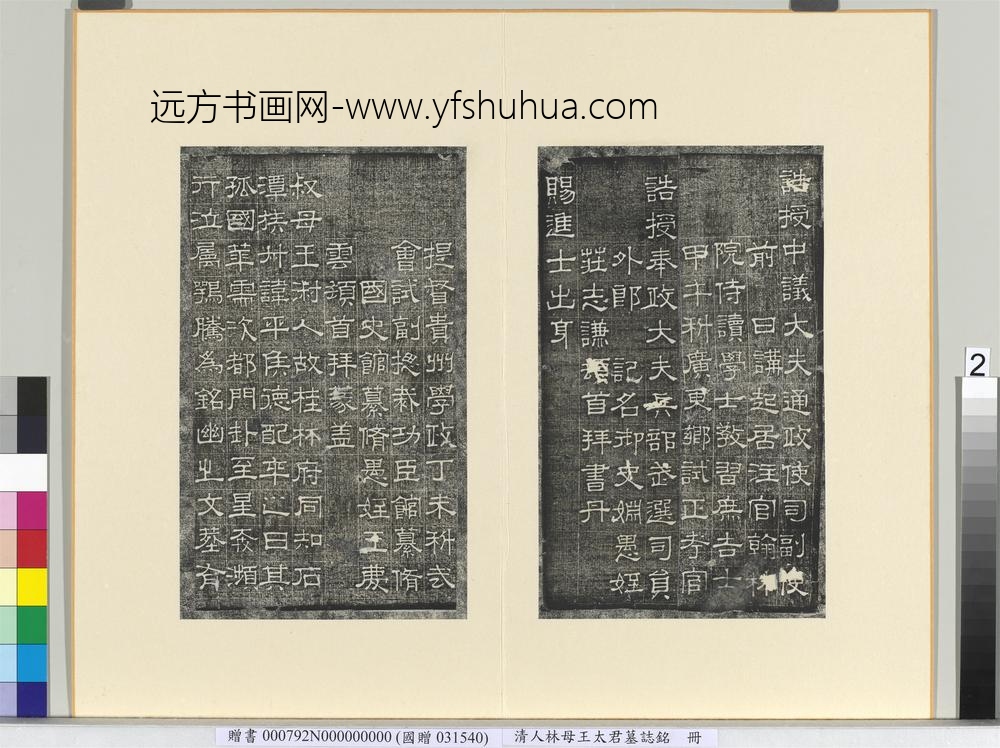 远方书画网-www.yfshuhua.com
誥授中議大夫通政使司副使
前日講起居注官翰林
院侍讀學士教習庶吉士
甲午科廣東鄉試正考官
誥授奉政大夫兵部武選司員
外郎 記名御史姻愚姪
莊志謙頓首拜書丹
賜進士出身
提督貴州學政丁未科武
會試副總裁功臣館纂脩
國史館纂脩愚姪王慶
雲頓首拜篆蓋
叔母王淑人故桂林府同知石
潭族叔諱平侯德配卒之日其
孤國華需次都門訃至星夜瀕
行泣屬鶚騰為銘幽之文葢有
2
贈書 000792N000000000 (國贈 031540)
清人林母王太君墓誌銘 冊